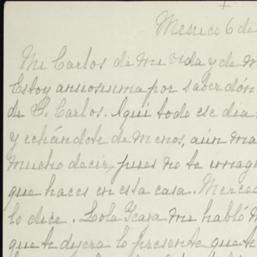 Mexico 6 de
Mi Carlos de mi vida y de m
Estoy ansiosisima por saber dón
de S. Carlos. Aquí todo ese dia
y echándote de menos, aún ma
mucho decir, pues no te imagin
que haces en esta casa. Merced
lo dice. Lola me habló
que te dijera lo presente que te